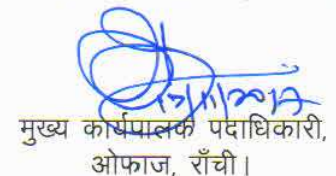 मुख्य कार्यपालक पदाधिकारी,
ओफाज, राँची।